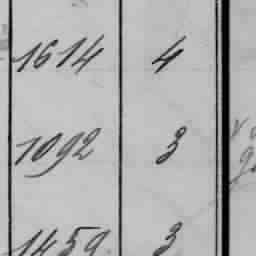 1614 4
1092 3
1459 3